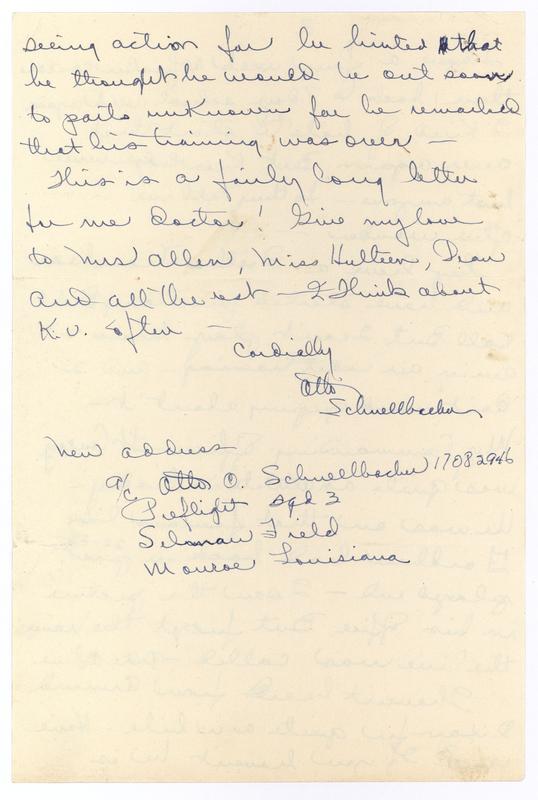 seeing action for he hinted that
he thought he would be out soon
to parts unknown for he remarked
that his training was over —
This is a fairly long letter
for me Doctor! Give my love
to Mrs Allen, Miss Hulteen, Dean
and all the rest — I think about
K.U. often —
Cordially
Otto
Schnellbacher
New address
A/C Otto O. Schnellbacher 17082946
Preflight Sqd 3
Selman Field
Monroe Louisiana